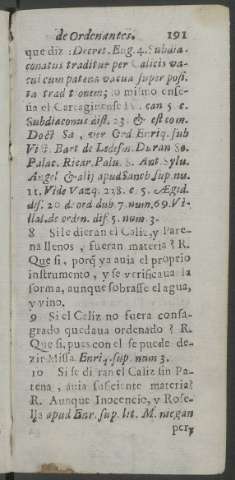 de Ordenantes. 191
que diz: Decret. Eug. 4. Subdia-
conatus traditur per Calicis va-
cui cum patena vacua super posi-
ta traditionem; lo mismo ense-
ña el Cartaginense IV. can 5 c.
Subdiaconus dist. 23. & est com.
Doct Sa, ver Ord Enriq. sub
Vist. Bart de Ledesm. Duran So.
Palac. Ricar. Palu. S. Ant. Sylu.
Angel & alij apud Sanch sup. nu.
11. Vide Vazq. 238. c. 5. Ægid.
dis. 20 d. ord dub. 7. num. 69. Vi-
llal. de orden. dif. 5. num. 3.
8 Si le dieran el Caliz, y Pate-
na llenos, fueran materia? R.
Que si, porq̃ ya auia el proprio
instrumento, y se verificaua la
forma, aunque sobrasse el agua,
y vino.
9 Si el Caliz no fuera consa-
grado quedaua ordenado? R.
Que si, pues con el se puede de-
zir Missa. Enriq. sup. num 3.
10 Si se dieran el Caliz sin Pa-
tena, auia suficiente materia?
R. Aunque Inocencio, y Rose-
lla apud Enr. sup. lit. M. niegan
per,